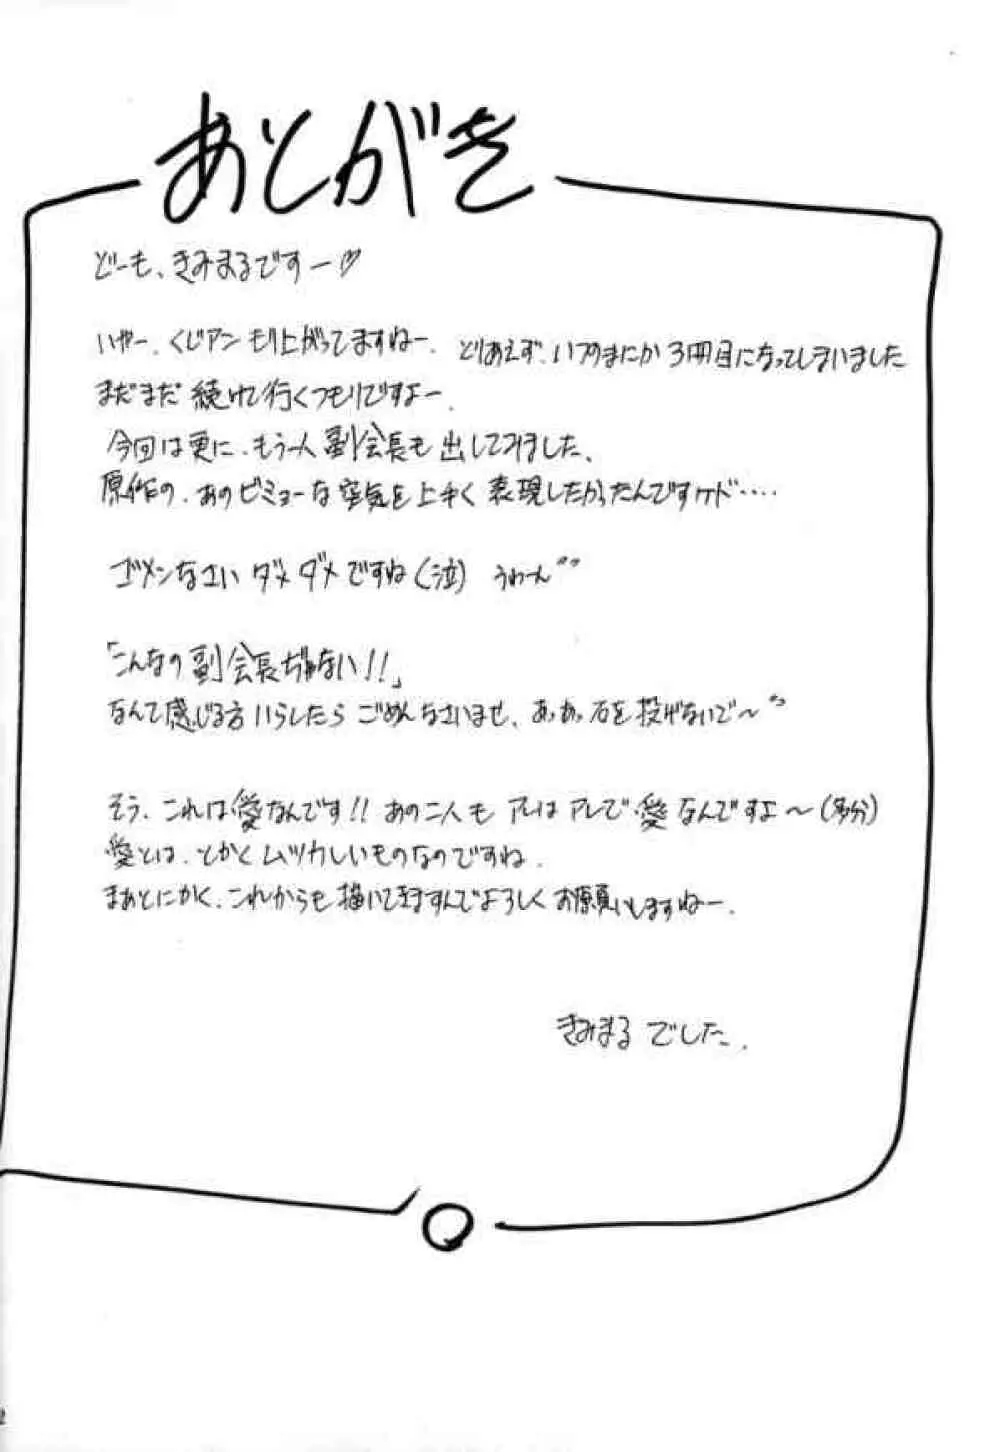 あとがき
どーも、きみまるですー♡
いやー、くじアンもり上がってますねー、とりあえず、いつのまにか3冊目になってしまいました
まだまだ続けて行くつもりですよー、
今回は更に、もう一人副会長も出してみました、
原作の、あのビミョーな空気を上手く表現したかったんですケド‥‥
ゴメンなさいダメダメですね(泣) うわーん〃
「こんなの副会長ぢゃない!!」
なんて感じる方いらしたらごめんなさいませ、あっあっ石を投げないで〜〃
そう、これは愛なんです!! あの二人もアレはアレで愛なんですよ〜(多分)
愛とは、とかくムツカしいものなのですね、
まぁとにかく、これからも描いてきますんでよろしくお願いしますねー、
きみまるでした、